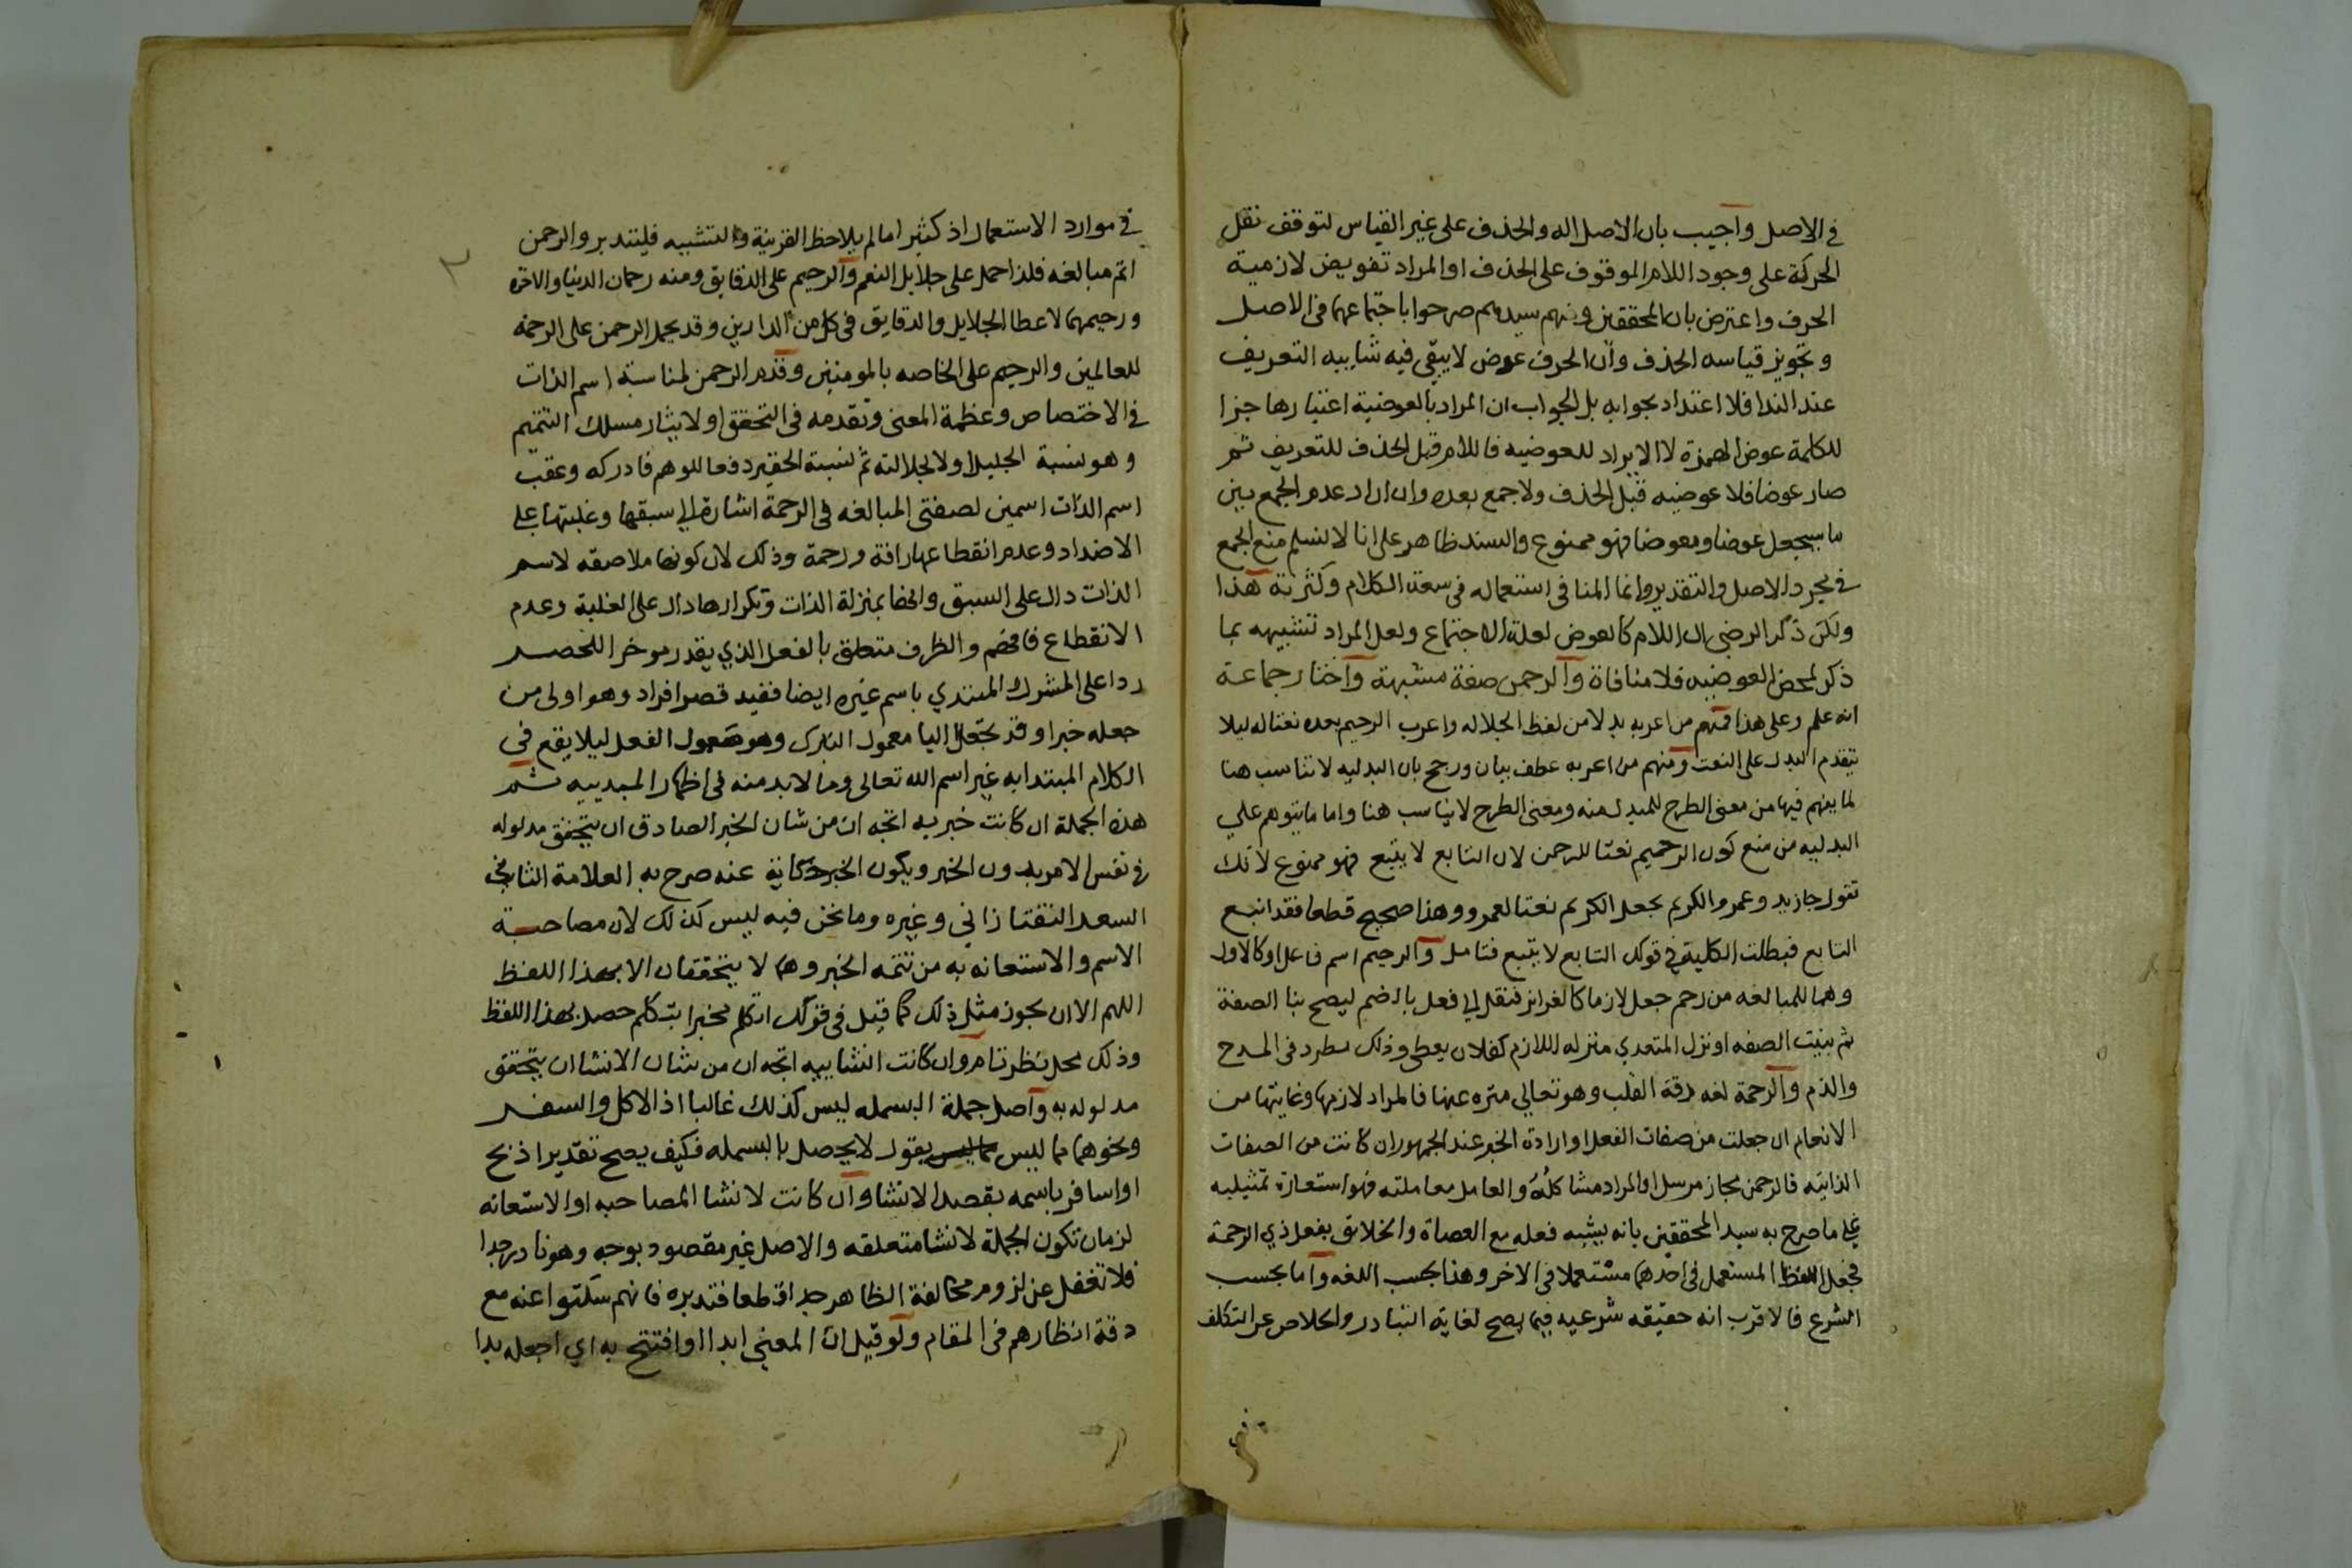 في الاصل واجيب بان الاصل اله والحذف على غير القياس لتوقف نقل
الحركة على وجود اللام الموقوف على الحذف او المراد تفويض لازمية
الحرف واعترض بان المحققين ومنهم سيدهم صرحوا باجتماعهما في الاصل
وتجويز قياسه الحذف وان الحرف عوض لا يبقى فيه شايبه التعريف
عند الندا فلا اعتداد بجوابه بل الجواب ان المراد بالعوضية اعتبارها جزا
للكلمة عوض الهمزة لا الايراد للعوضيه فاللام قبل الحذف للتعريف ثم
صار عوضا فلا عوضيه قبل الحذف ولا جمع بعده وان اراد عدم الجمع بين
ما سيجعل عوضا ومعوضا فهو ممنوع والسند ظاهر على انا لا نسلم منع الجمع
في مجرد الاصل والتقدير وانما المنافي استعماله في سعة الكلام وكثرته هذا
ولكن ذكر الرضي ان اللام كالعوض لعلة الاجتماع ولعل المراد تشبيهه بما
ذكر لمحض العوضيه فلا منافاة والرحمن صفة مشبهة واختار جماعة
انه علم وعلى هذا فمنهم من اعربه بدلا من لفظ الجلاله واعرب الرحيم بعده نعتا له ليلا
يتقدم البدل على النعت ومنهم من اعربه عطف بيان ورجح بان البدليه لا تناسب هنا
لما يفهم فيها من معنى الطرح للمبدل منه ومعنى الطرح لا يناسب هنا واما ما يتوهم علي
البدليه من منع كون الرحميم نعتا للرحمن لان التابع لا يتبع فهو ممنوع لانك
تقول جا زيد وعمرو الكريم بجعل الكريم نعتا لعمرو وهذا صحيح قطعا فقد اتبع
التابع فبطلت الكلية في قولك التابع لا يتبع فتامل والرحيم اسم فاعل او كالاول
وهما للمبالغه من رحم جعل لازما كالغرايز فنقل الي فعل بالضم ليصح بنا الصفة
ثم بنيت الصفه او نزل المتعدي منزله اللازم كفلان يعطي وذلك مطرد في المدح
والذم والرحمة لغه رقة القلب وهو تعالي منزه عنها فالمراد لازمها وغايتها من
الانعام ان جعلت من صفات الفعل او ارادة الخير عند الجمهور ان كانت من الصفات
الذاتيه فالرحمن مجاز مرسل او المراد مشاكلة والعامل معاملته فهو استعارة تمثيليه
علي ما صرح به سيد المحققين بانه يشبه فعله مع العصاة والخلائق بفعل ذي الرحمة
فجعل اللفظ المستعمل في احدهما مستعملا في الاخر وهذا بحسب اللغه واما بحسب
الشرع فالاقرب انه حقيقه شرعيه فيما يصح لغاية التبادر والخلاص عن التكلف
في موارد الاستعمال اذ كثيرا ما لم يلاحظ القرينة والتشبيه فليتدبر والرحمن
اتم مبالغه فلذا حمل على جلايل النعم والرحيم على الدقايق ومنه رحمان الدنيا والاخره
ورحيمهما لاعطا الجلايل والدقايق في كل من الدارين وقد يحمل الرحمن على الرحمه
للعالمين والرحيم على الخاصه بالمومنين وقدم الرحمن لمناسبة اسم الذات
في الاختصاص وعظمة المعنى وتقدمه في التحقق او لايثار مسلك التتميم
وهو نسبة الجليل اولا لجلالته ثم نسبة الحقير دفعا للوهم فادركه وعقب
اسم الذات اسمين لصفتي المبالغه في الرحمة اشارة الي سبقها وغلبتها علي
الاضداد وعدم انقطاعها رافة ورحمة وذلك لان كونها ملاصقه لاسم
الذات دال على السبق وانها بمنزلة الذات وتكرارها دال على الغلبة وعدم
الانقطاع فافهم والظرف متعلق بالفعل الذي يقدر موخرا للحصر
ردا على المشرك المبتدي باسم غيره ايضا فقيد قصر افراد وهو اولى من
جعله خبرا وقد تجعل البا معمول التبرك وهو معمول الفعل ليلا يقع في
الكلام المبتدا به غير اسم الله تعالى وما لا بد منه في اظهار المبديه ثم
هذه الجملة ان كانت خبريه اتجه ان من شان الخبر الصادق ان يتحقق مدلوله
في نفس الامر بدون الخبر ويكون الخبر حكاية عنه صرح به العلامة الثاني
السعد التفتازاني وغيره وما نحن فيه ليس كذلك لان مصاحبة
الاسم والاستعانه به من تتمه الخبر وهما لا يتحققان الا بهذا اللفظ
اللهم الا ان يجوز مثل ذلك كما قيل في قولك اتكلم مخبرا بتكلم حصل بهذا اللفظ
وذلك محل نظر تام وان كانت انشاييه اتجه ان من شان الانشا ان يتحقق
مدلوله به واصل جملة البسمله ليس كذلك غالبا اذ الاكل والسفر
ونحوهما مما ليس بقول لا يحصل بالبسمله فكيف يصح تقدير اذبح
او اسافر باسمه بقصد الانشا وان كانت لانشا المصاحبه او الاستعانه
لزم ان تكون الجملة لانشا متعلقه والاصل غير مقصود بوجه وهو نادر جدا
فلا تغفل عن لزوم مخالفة الظاهر جدا قطعا فتدبره فانهم سكتوا عنه مع
دقة انظارهم في المقام ولو قيل ان المعنى ابدا او افتتح به اي اجعله بدا